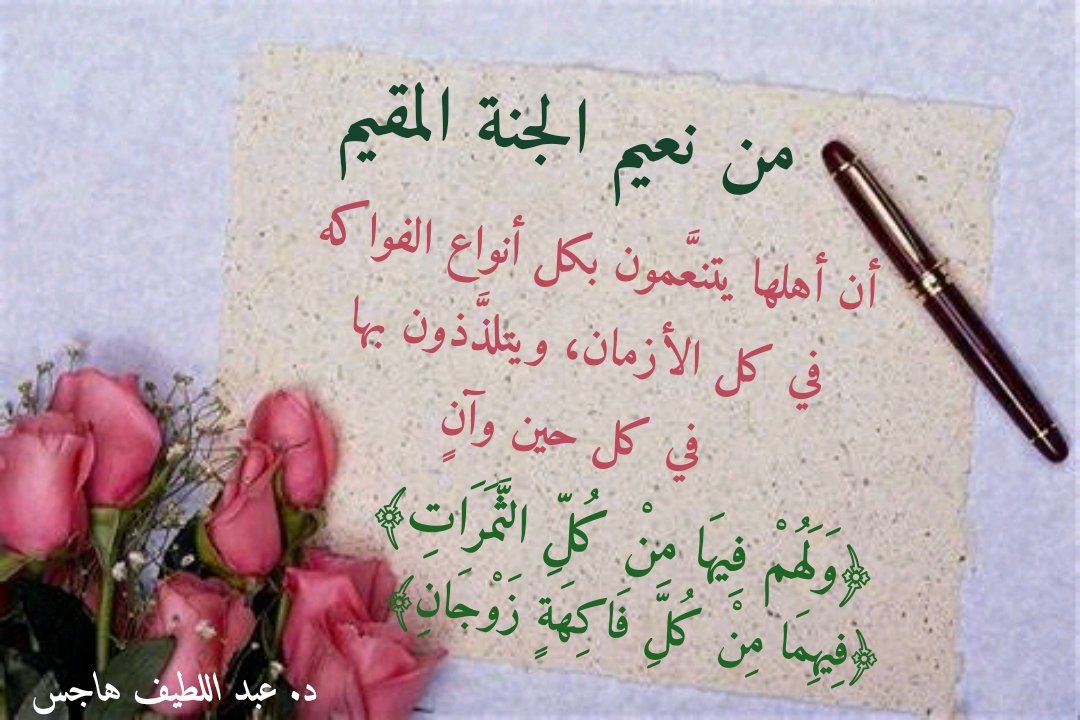 من نعيم الجنة المقيم
أن أهلها يتنعَّمون بكل أنواع الفواكه
في كل الأزمان، ويتلذَّذون بها
في كل حين وآنٍ
﴿وَلَهُمْ فِيهَا مِنْ كُلِّ الثَّمَرَاتِ﴾
﴿فِيهِمَا مِنْ كُلِّ فَاكِهَةٍ زَوْجَانِ﴾
د. عبد اللطيف هاجس